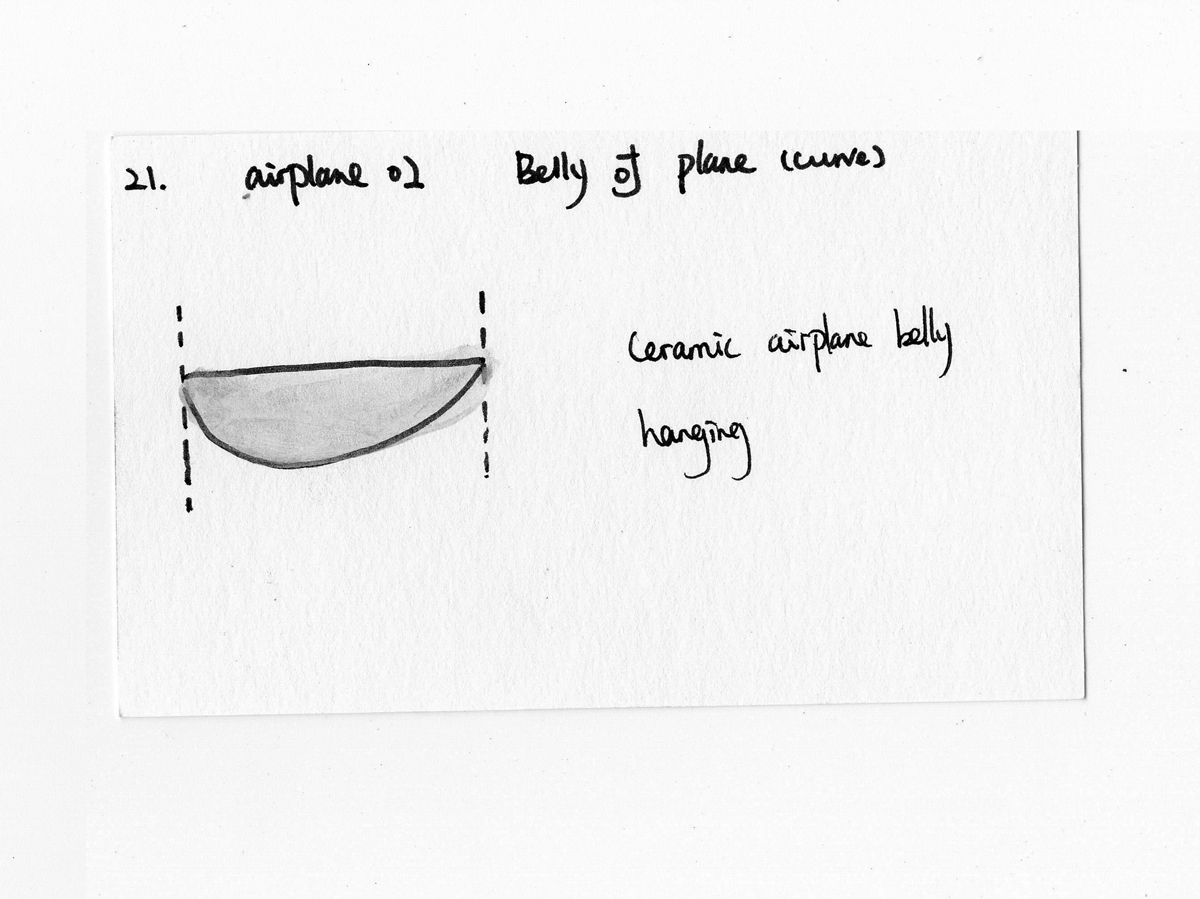 21. airplane 02 Belly of plane (curve)
ceramic airplane belly
hanging